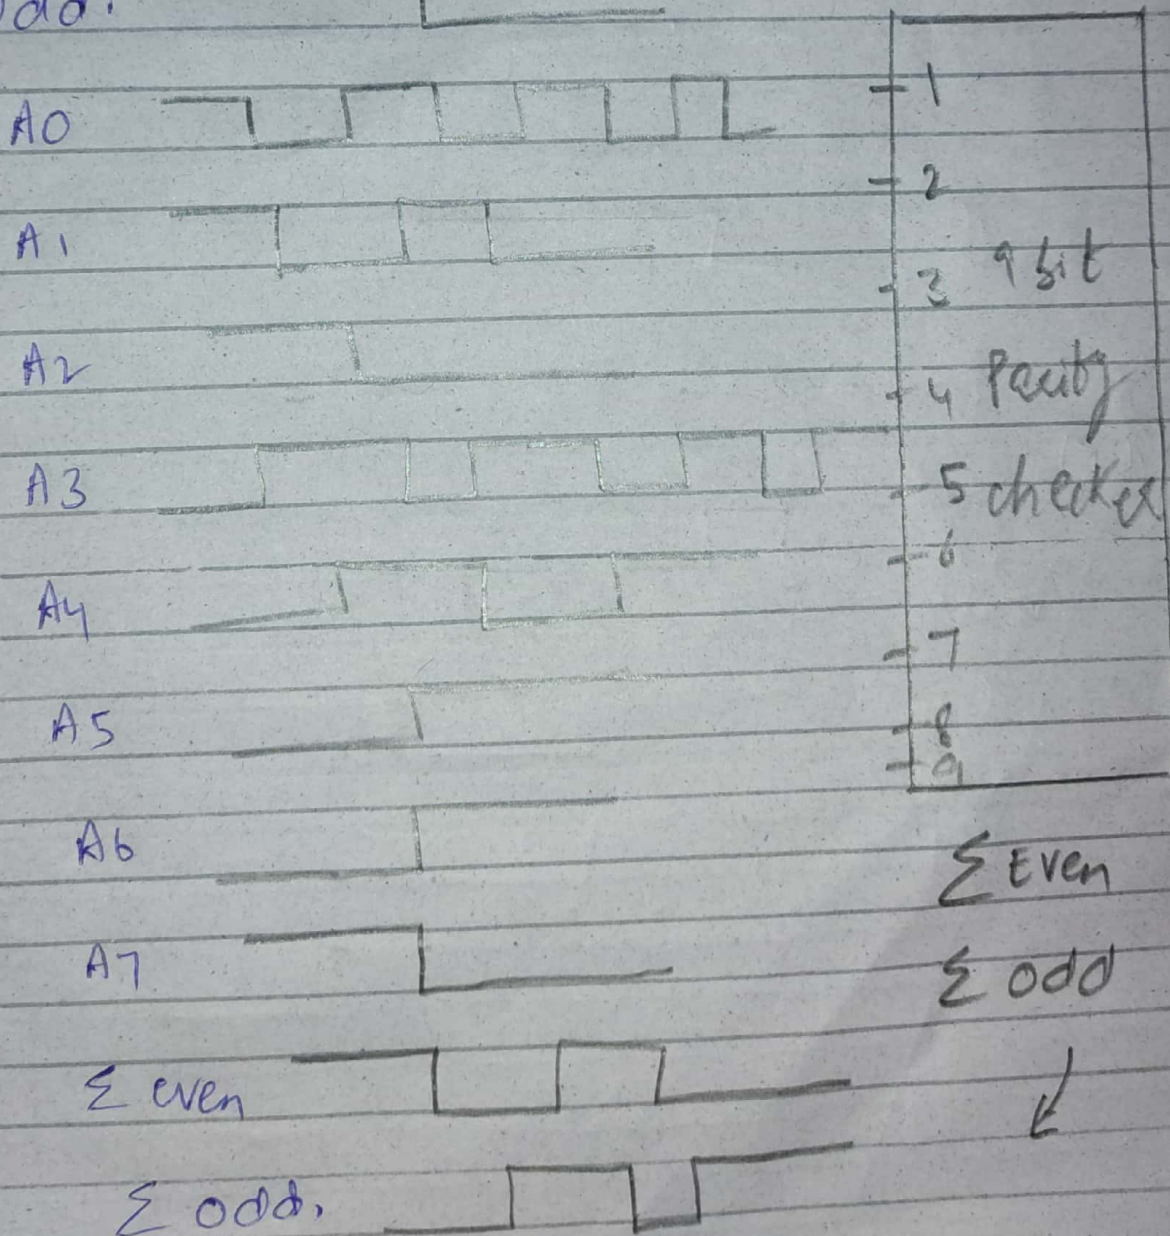 odd.
A0
A1
A2
A3
A4
A5
A6
A7
Σ even
Σ odd.
1
2
3
4
5
6
7
8
9
9 bit
Parity
checker
Σ Even
Σ odd